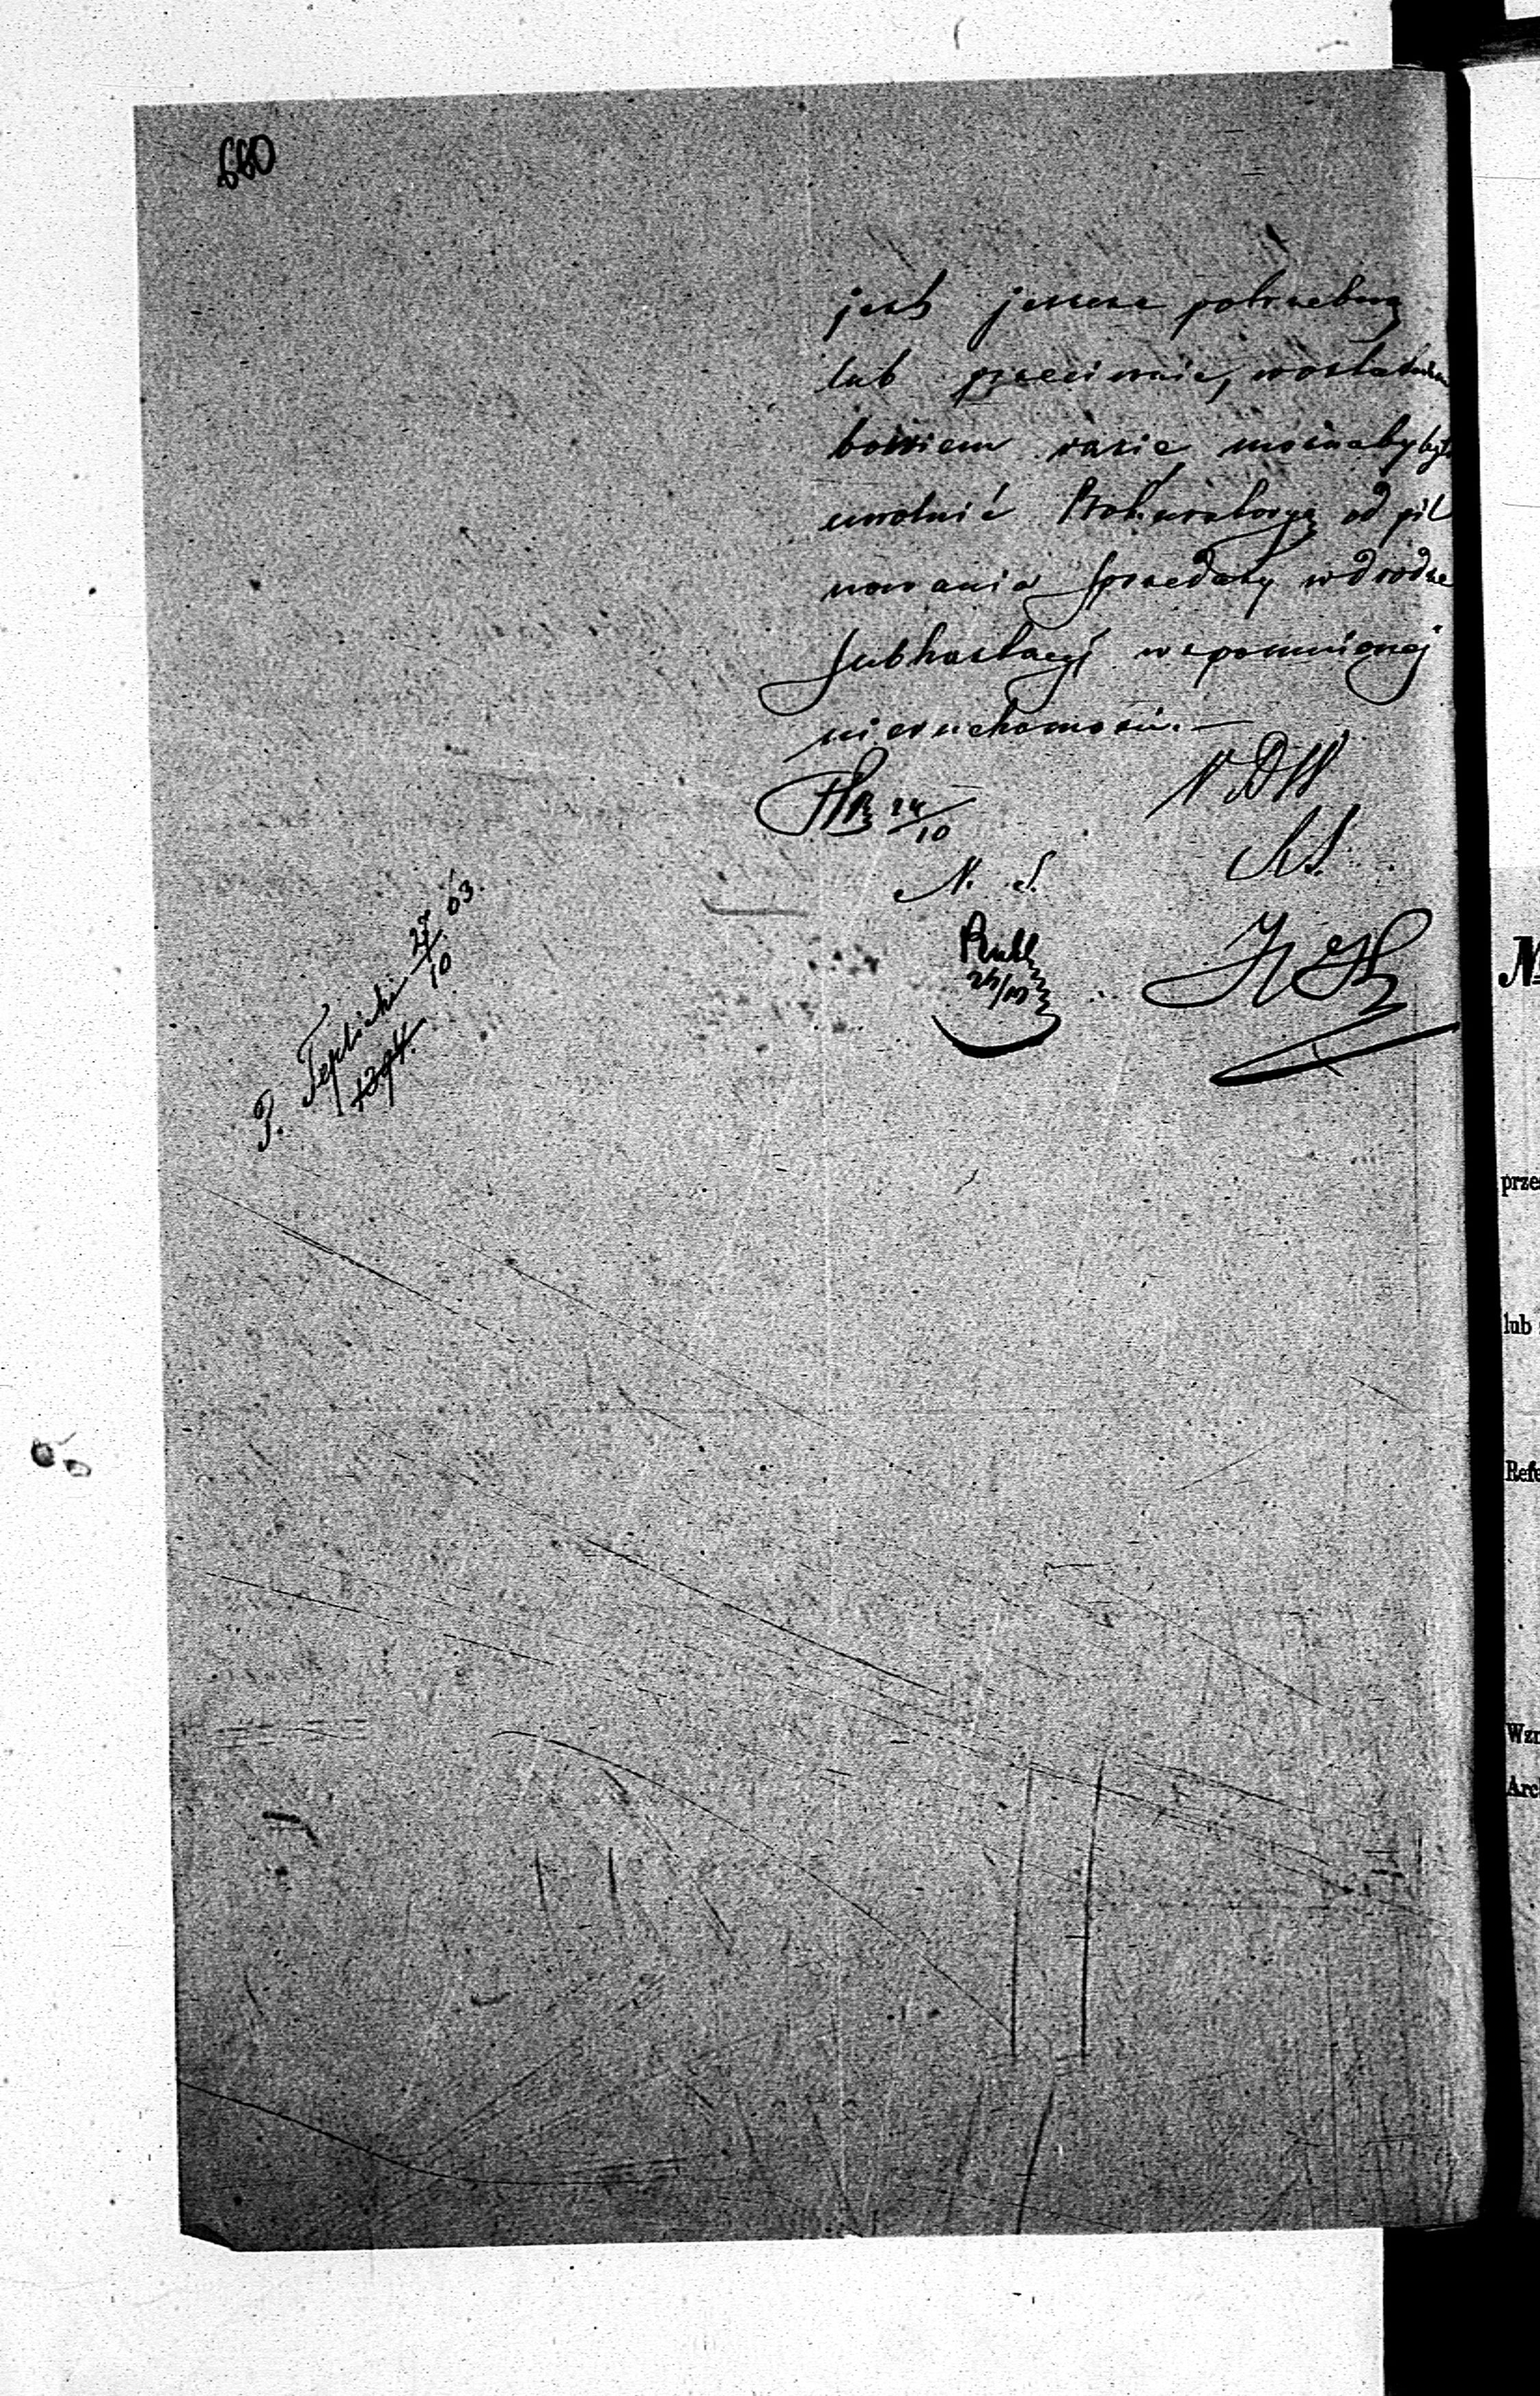 660
jest jeszcze potrzebną
lub przeciwnie, w ostatnim
bowiem razie możnaby było
uwolnić Prokuratoryą od pil
nowania sprzedaży w drodze
subhastacyi wspomnionej
nieruchomości. —
24/10
N. D W
N. S.
P. Teplicki 27/10 63.
1394.
№
prze
lub
Refe
Wzn
Arc